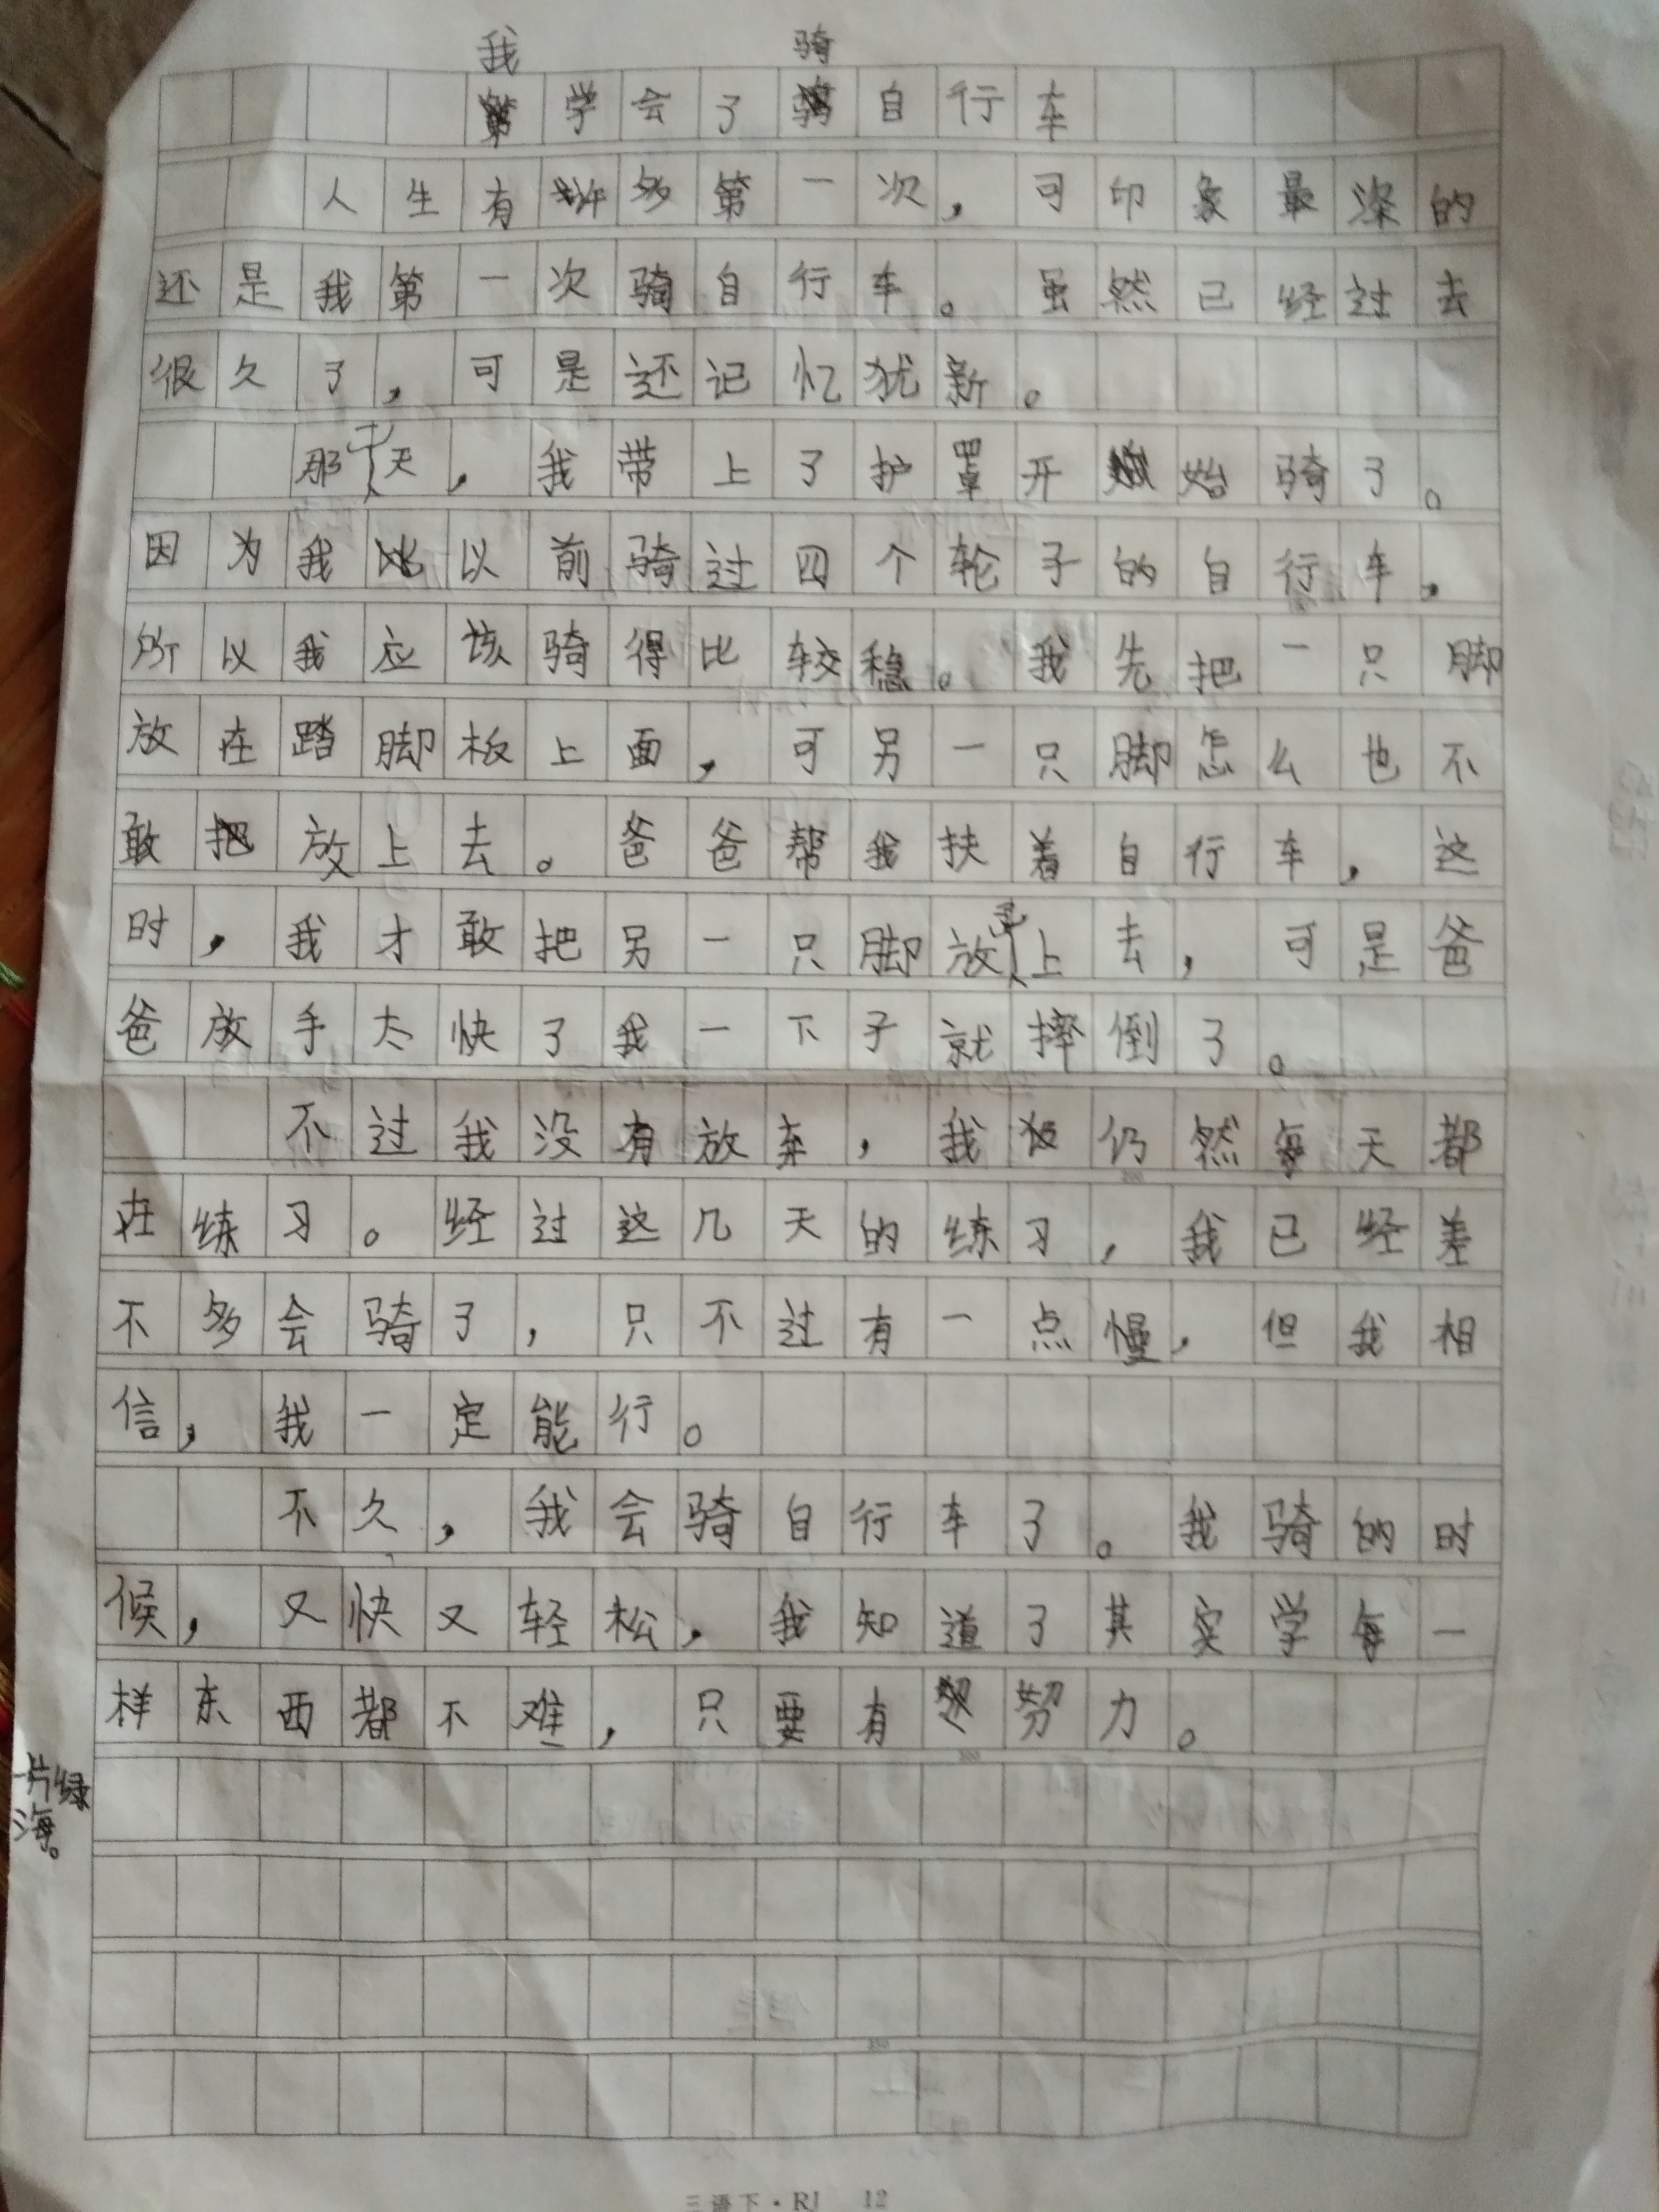 我学会了骑自行车
人生有许多第一次，可印象最深的
还是我第一次骑自行车。虽然已经过去
很久了，可是还记忆犹新。
那天，我带上了护罩开始骑了。
因为我以前骑过四个轮子的自行车，
所以我应该骑得比较稳。我先把一只脚
放在踏脚板上面，可另一只脚怎么也不
敢放上去。爸爸帮我扶着自行车，这
时，我才敢把另一只脚放上去，可是爸
爸放手太快了我一下子就摔倒了。
不过我没有放弃，我仍然每天都
在练习。经过这几天的练习，我已经差
不多会骑了，只不过有一点慢，但我相
信，我一定能行。
不久，我会骑自行车了。我骑的时
候，又快又轻松，我知道了其实学每一
样东西都不难，只要有努力。
一片绿
海。
三语下·RJ 12